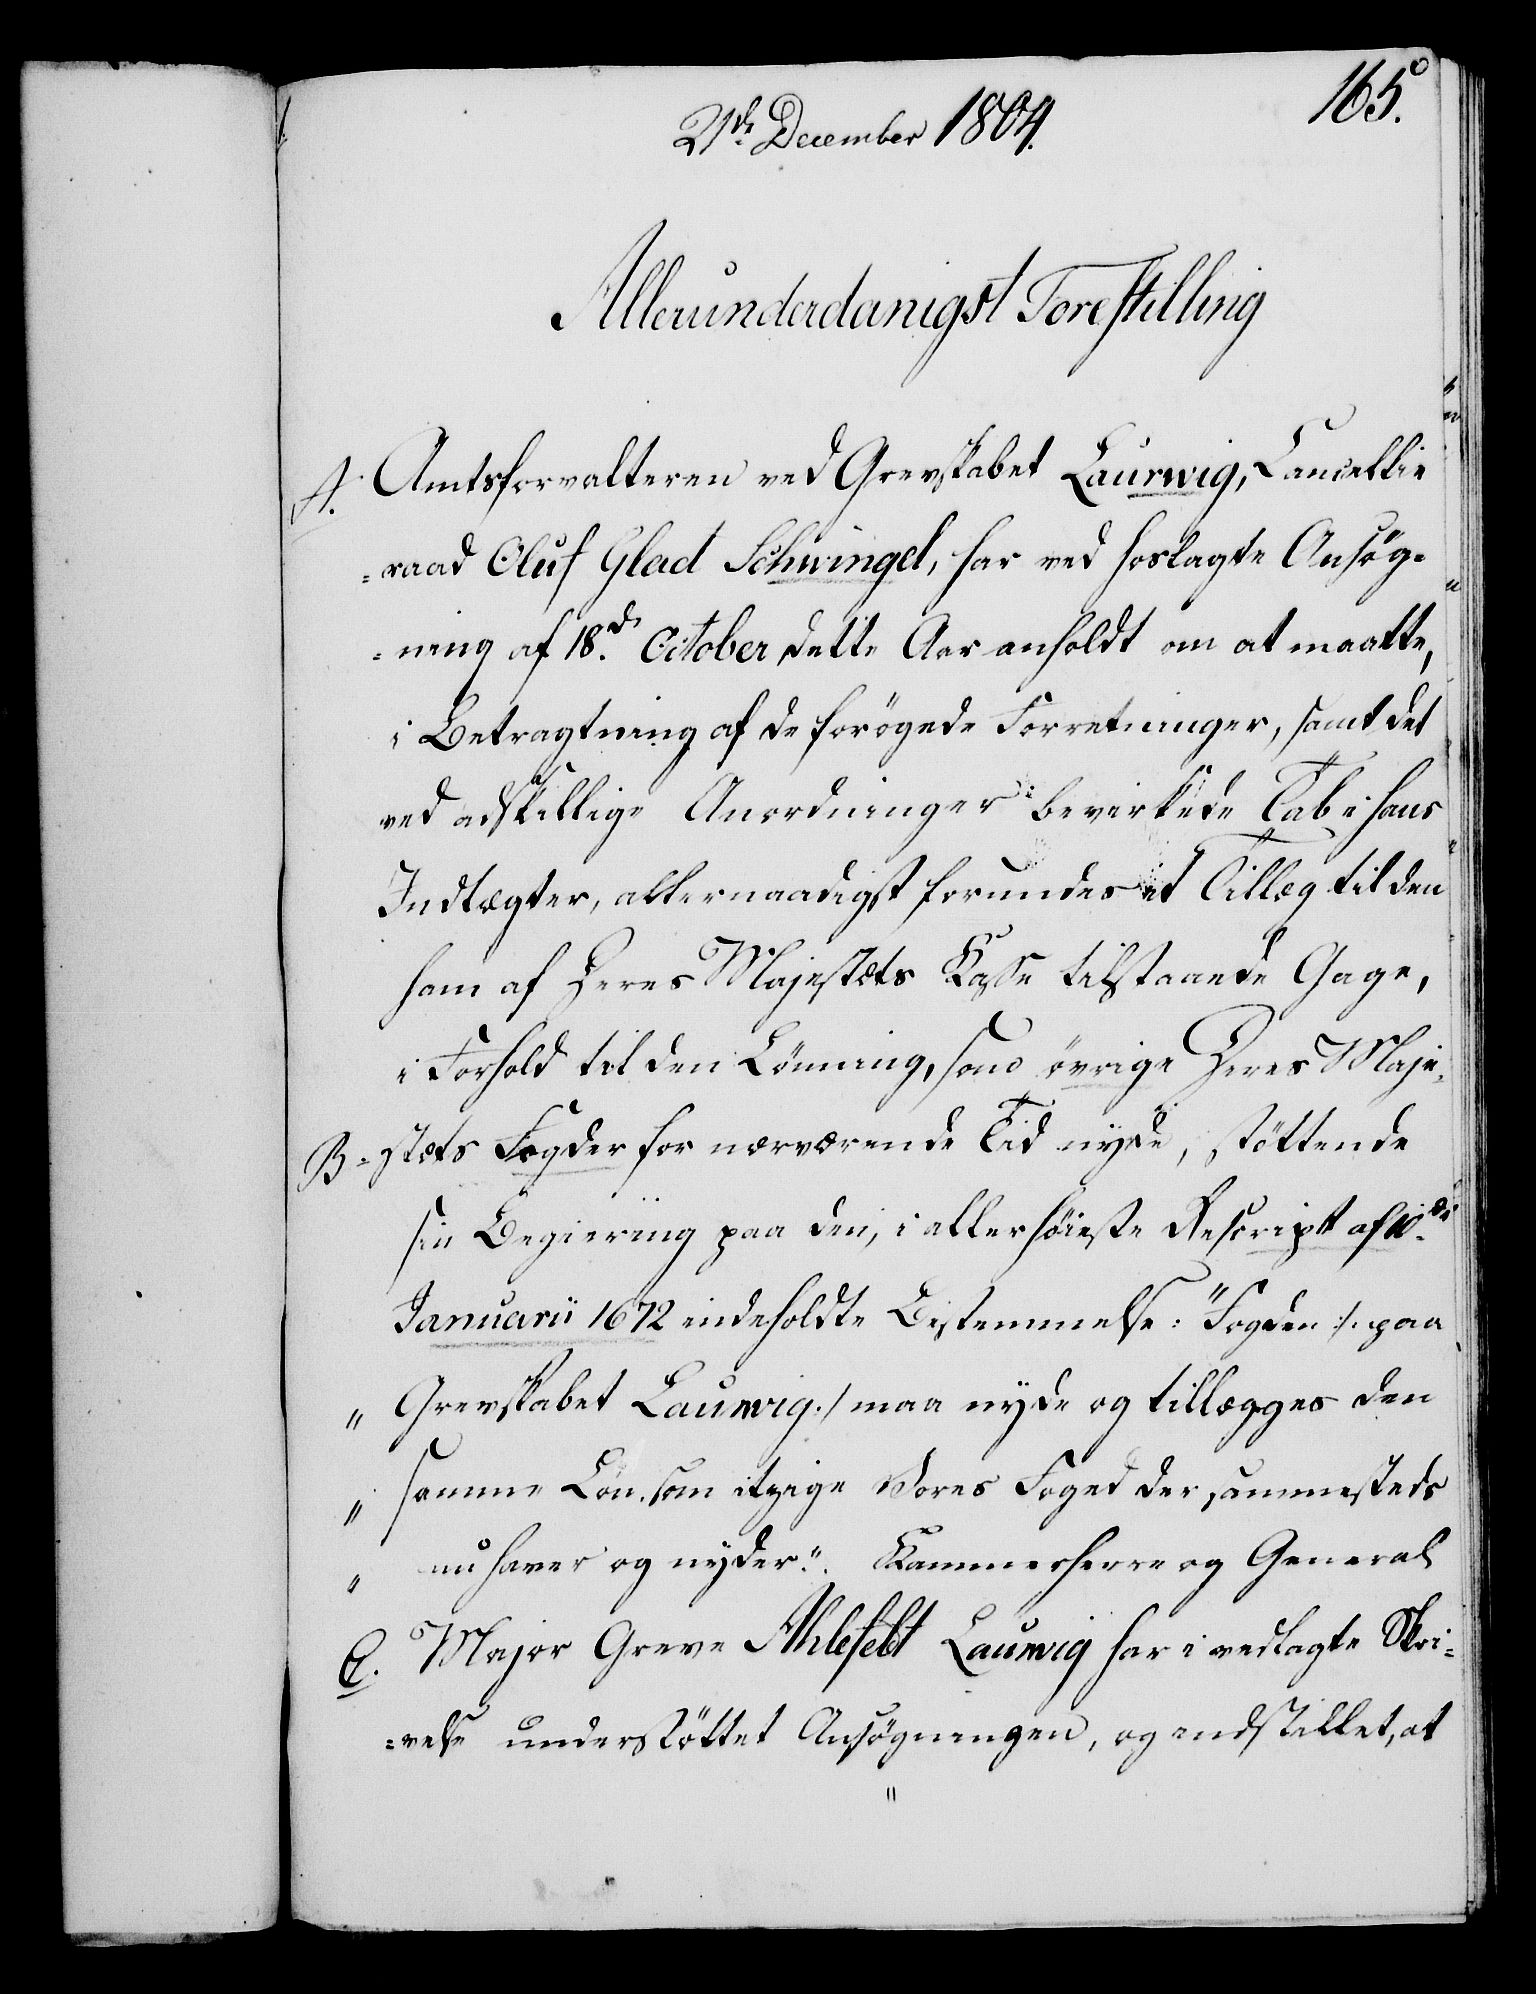 165.
21de December 1804.
Allerunderdanigst Forestilling
A. Amtsforvalteren ved Grevskabet Laurwig, Cancellie
=raad Oluf Glad Schwingel, har ved hoslagte Ansøg=
=ning af 18de October dette Aar anholdt om at maatte,
i Betragtning af de forögede Forretninger, samt det
ved adskillige Anordninger bevirkede Tab i hans
Indtægter, allernaadigst forundes et Tillæg til den
ham af Deres Majestæts Kasse tilstaaede Gage,
i Forhold til den Lönning, som övrige Deres Maje=
B =stæts Fogder for nærværende Tid nyde, stöttende
sin Begiering paa den, i allerhöieste Rescript af 10de
Januarii 1672 indeholdte Bestemmelse: "Fogden /: paa
" Grevskabet Laurwig :/ maa nyde og tillægges den
" samme Lön, som itzige Vores Foged der sammesteds
" nu haver og nyder." Kammerherre og General
C. Major Greve Ahlefeldt Laurwig har i vedlagte Skri=
=velse understöttet Ansögningen, og indstillet, at
"